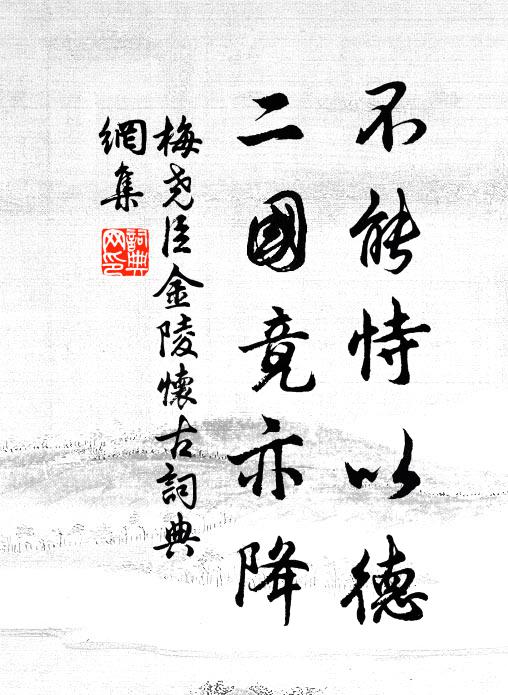 不能恃以德
二國竟亦降
梅堯臣金陵懷古詞典
網集
詞典
网印